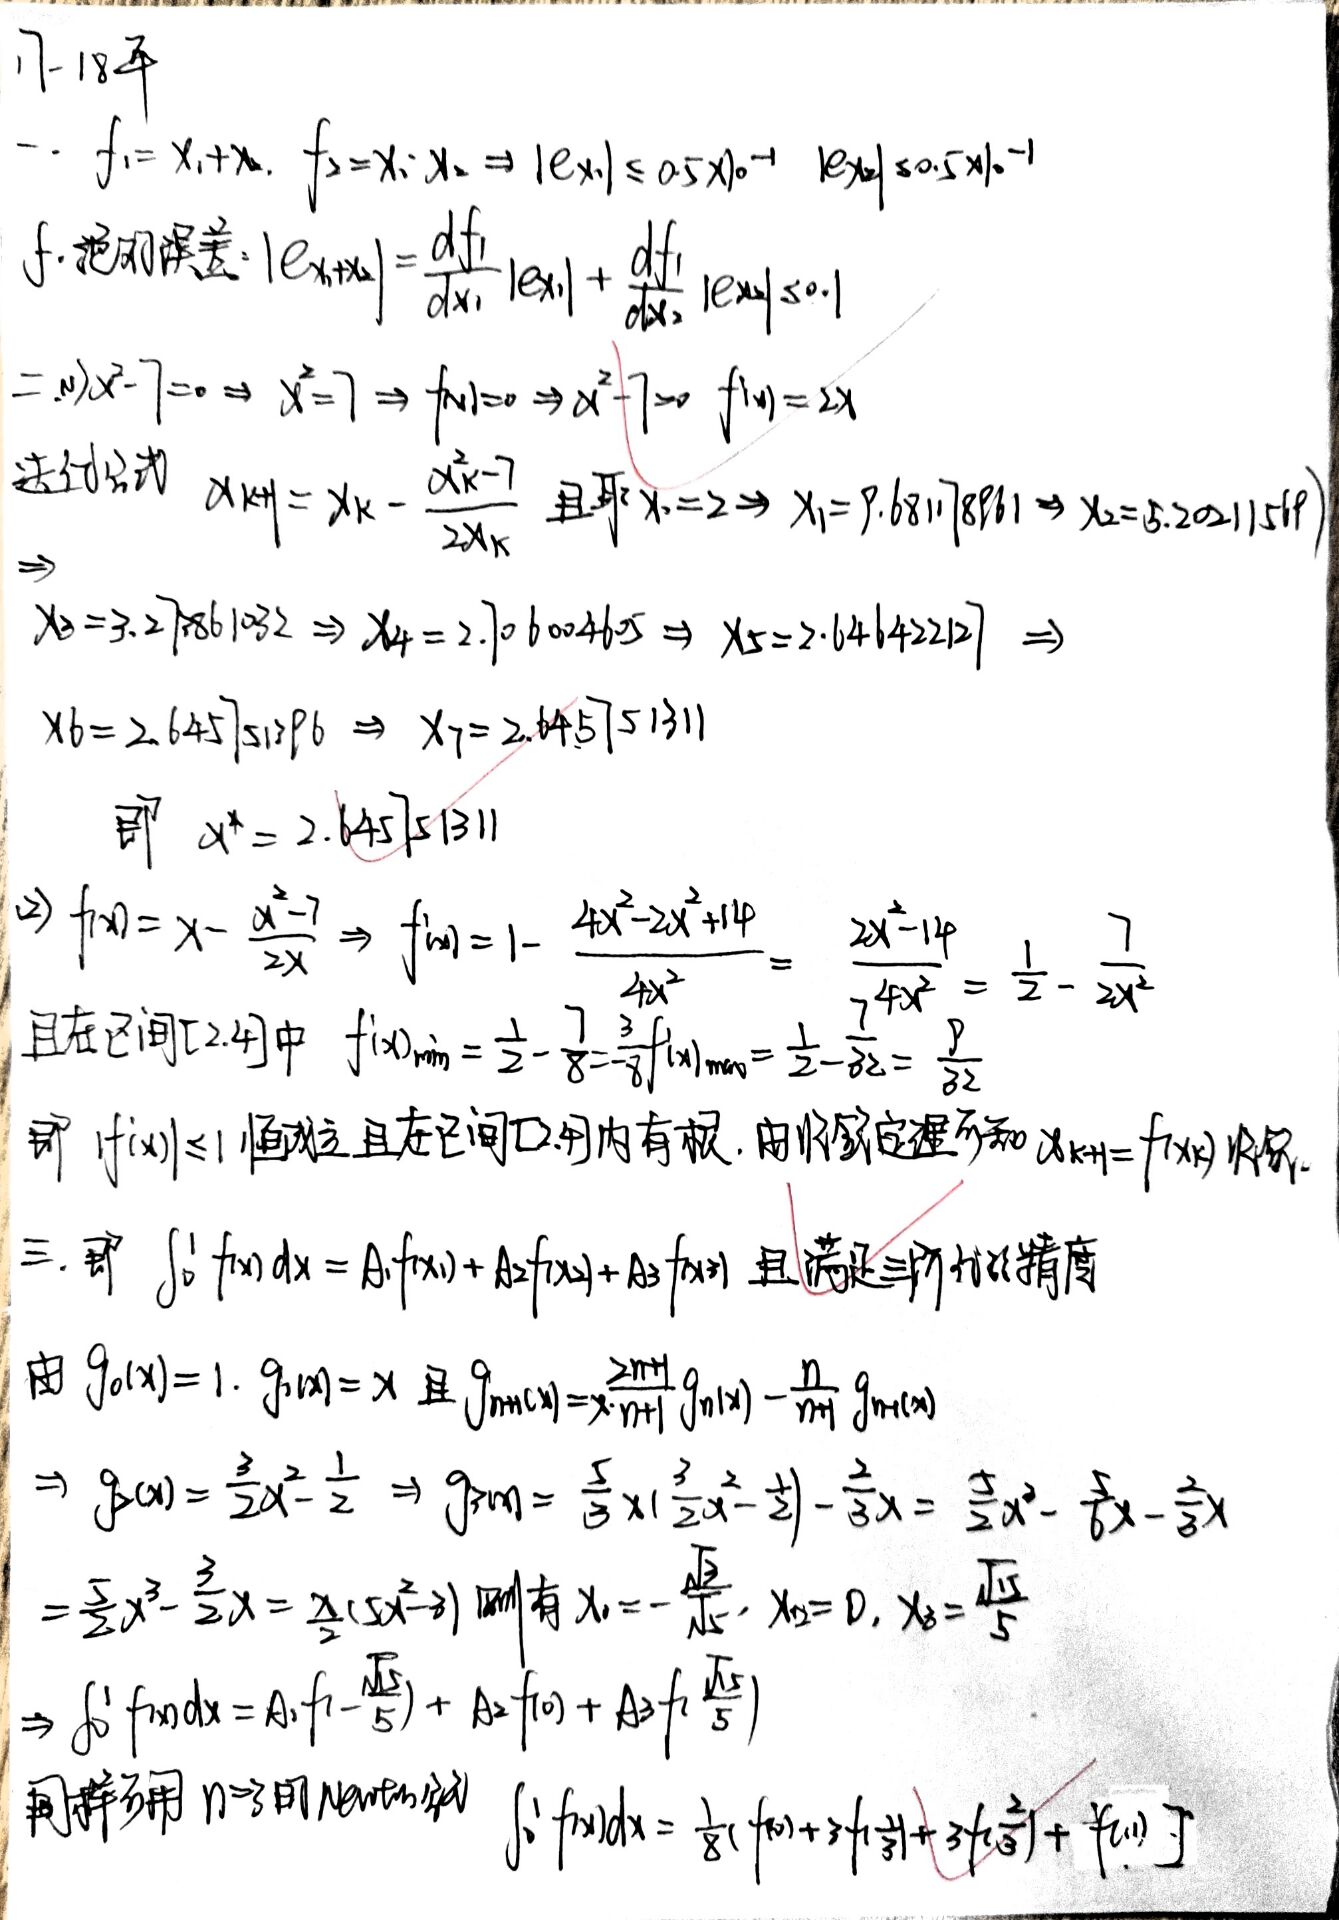 17-18年
一. f₁=x₁+x₂. f₂=x₁·x₂ ⇒ |eₓ₁| ≤ 0.5×10⁻¹ |eₓ₂| ≤0.5×10⁻¹
f.绝对误差: |eₓ₁₊ₓ₂| = df₁/dx₁ |eₓ₁| + df₁/dx₂ |eₓ₂| ≤0.1
二.(1) x²-7=0 ⇒ x²=7 ⇒ f(x)=0 ⇒ x²-7=0 f'(x)=2x
迭代公式 x_{k+1} = x_k - (x_k²-7)/(2x_k) 且取 x₀=2 ⇒ x₁=9.681178961 ⇒ x₂=5.20211569
⇒
x₃=3.273861032 ⇒ x₄=2.706004605 ⇒ x₅=2.646422127 ⇒
x₆=2.645751396 ⇒ x₇=2.645751311
即 x*=2.645751311
(2) f(x)= x - (x²-7)/(2x) ⇒ f'(x)=1- (4x²-2x²+14)/(4x²) = (2x²-14)/(4x²) = 1/2 - 7/(2x²)
且在区间[2.4]中 f'(x)min = 1/2 - 7/8 = -3/8 f'(x)max = 1/2 - 7/32 = 9/32
即 |f'(x)|≤1 恒成立 且在区间[2.4]内有根. 由收敛定理可知 x_{k+1}=f(x_k) 收敛.
三. 即 ∫₀¹ f(x)dx = A₁f(x₁)+A₂f(x₂)+A₃f(x₃) 且满足三阶代数精度
由 g₀(x)=1. g₁(x)=x 且 g_{n+1}(x)=x·(2n+1)/(n+1) g_n(x) - n/(n+1) g_{n-1}(x)
⇒ g₂(x)= 3/2x² - 1/2 ⇒ g₃(x)= 5/3 x(3/2x² - 1/2) - 2/3x = 5/2x³ - 5/6x - 2/3x
= 5/2x³ - 3/2x = x/2(5x²-3) 则有 x₁=-√3/√5, x₂=0, x₃=√15/5
⇒ ∫₀¹ f(x)dx = A₁f(-√15/5) + A₂f(0) + A₃f(√15/5)
同样可用 n=3的Newton公式 ∫₀¹ f(x)dx = 1/8( f(0)+3f(1/3)+3f(2/3)+ f(1) ]